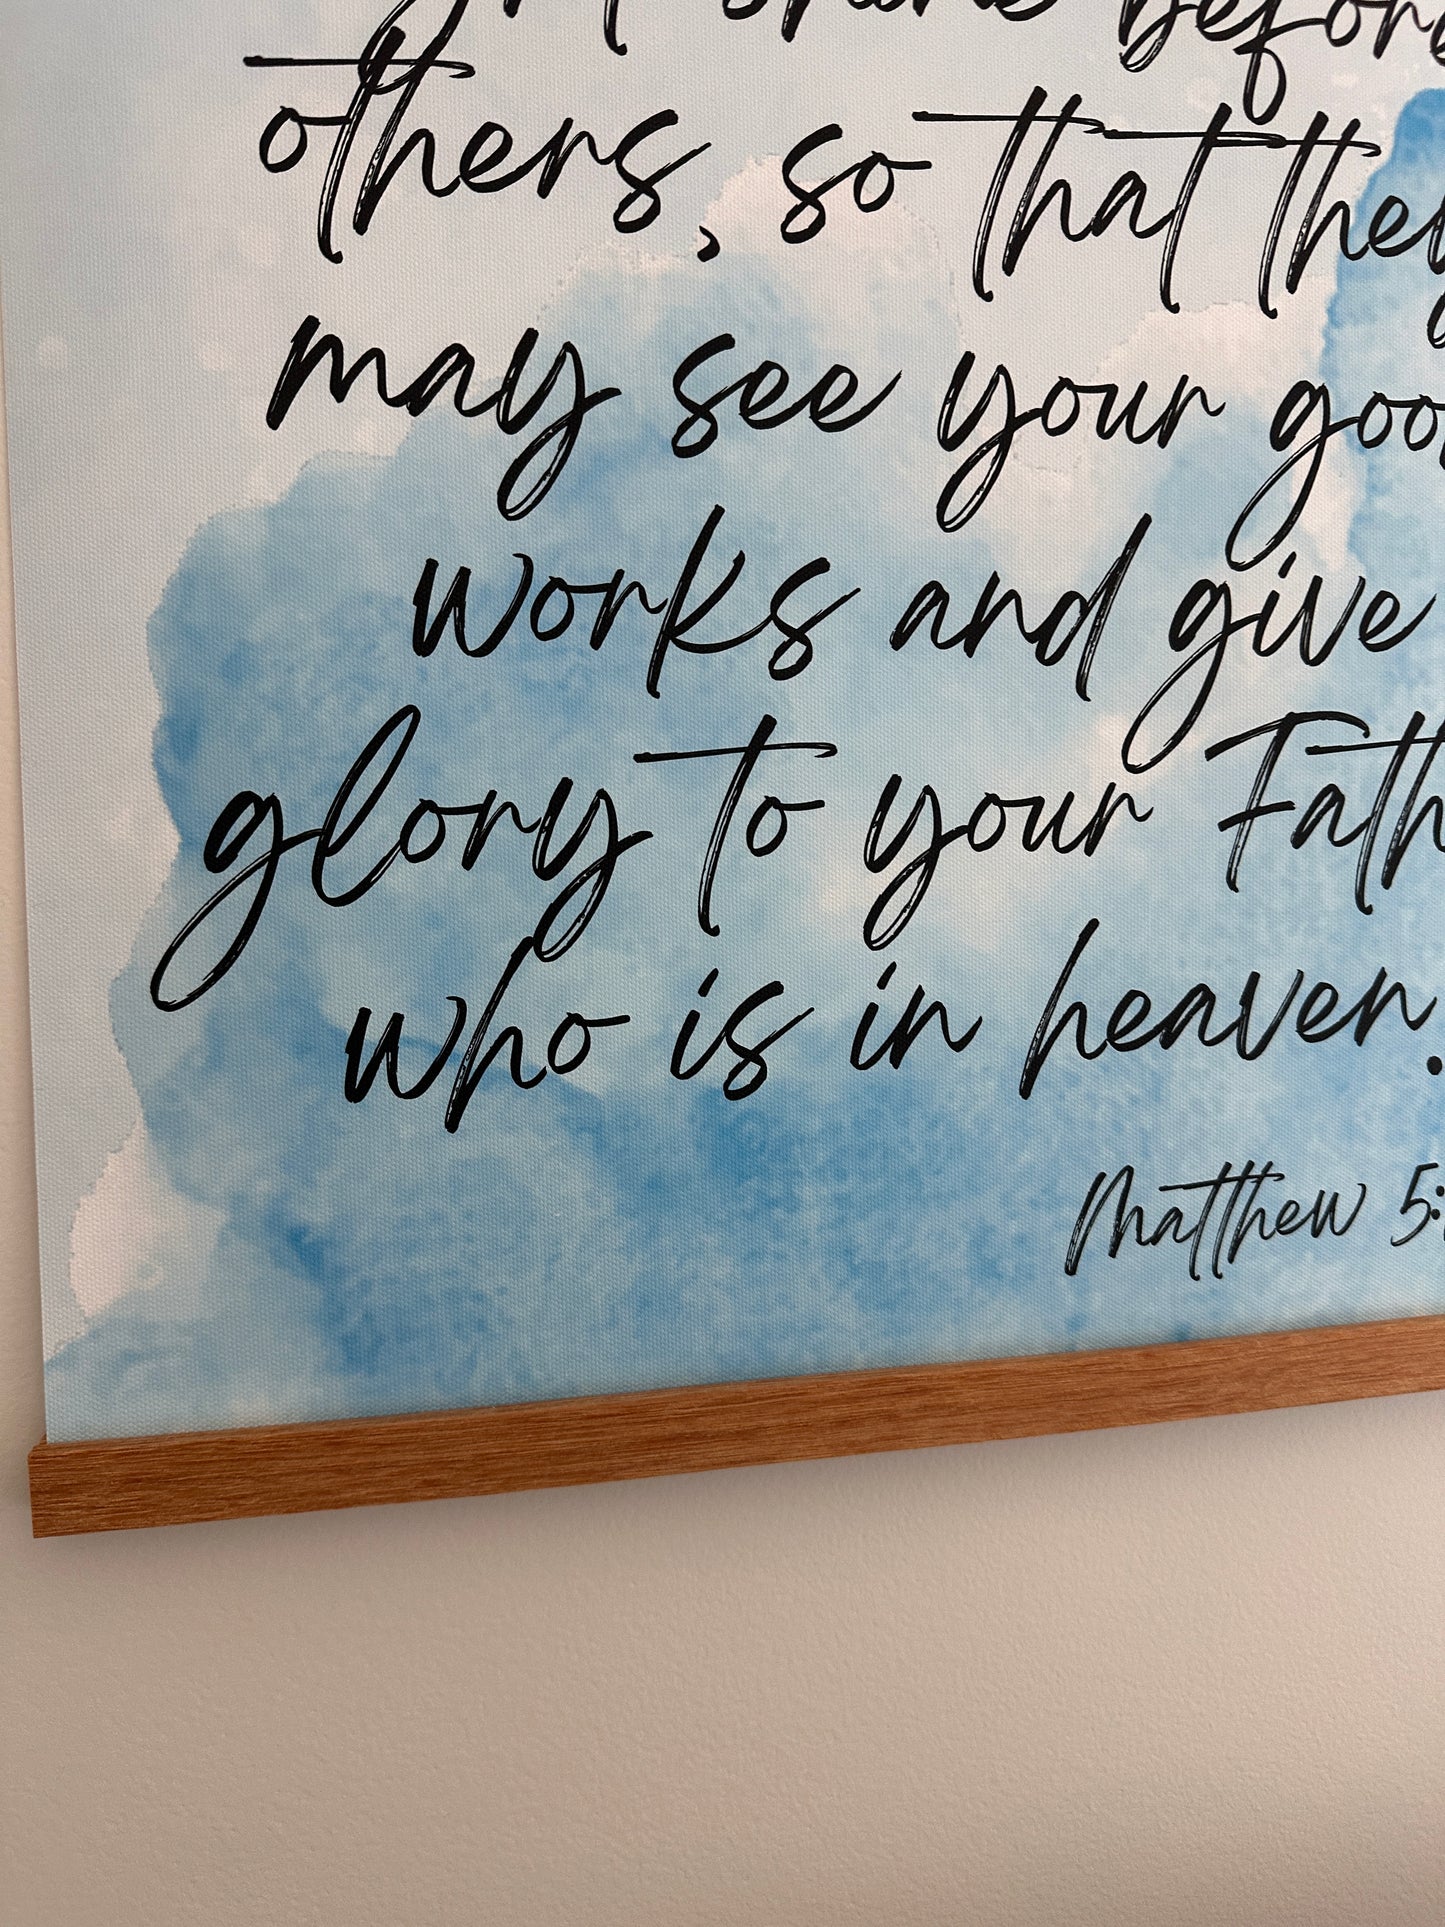 shine before
others, so that they
may see your good
works and give
glory to your
who is in heaven.
Matthew 5: